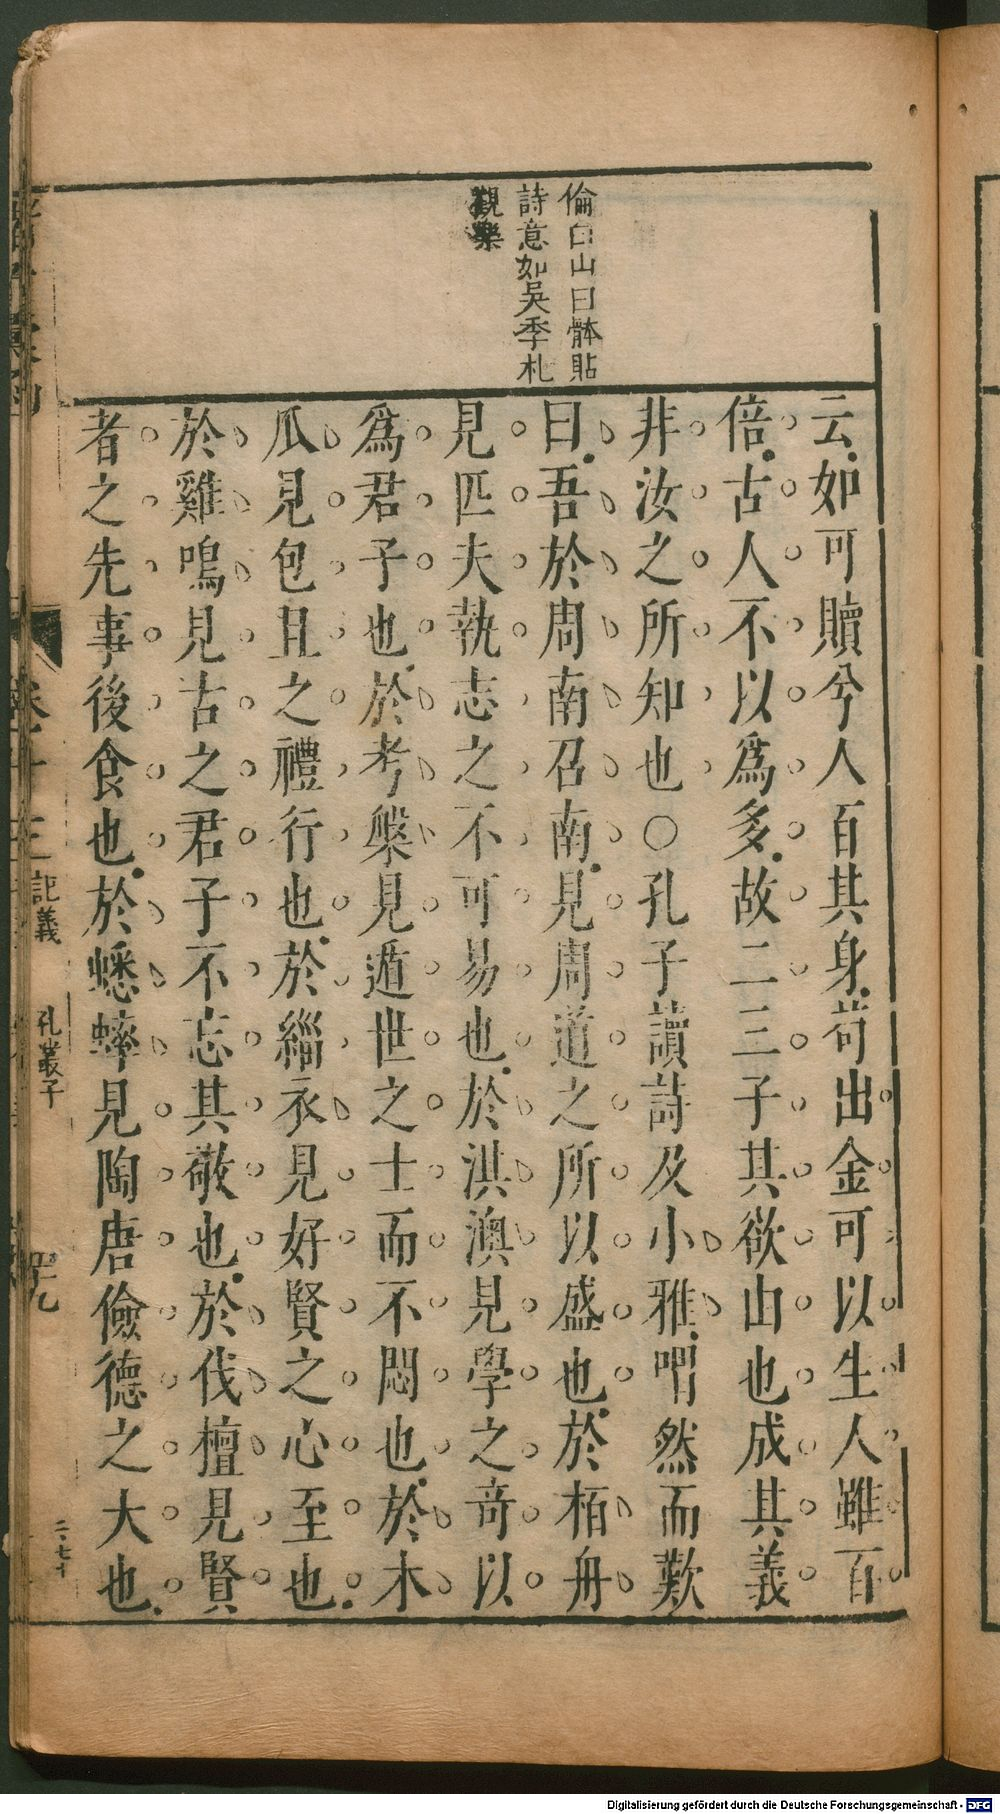 倫白山曰骵貼
詩意如吳季札
觀樂
云如可贖兮人百其身苟出金可以生人雖百
倍古人不以爲多故二三子其欲由也成其義
非汝之所知也○孔子讀詩及小雅喟然而歎
曰吾於周南召南見周道之所以盛也於栢舟
見匹夫執志之不可易也於淇澳見學之竒以
爲君子也於考槃見遁世之士而不悶也於木
瓜見包且之禮行也於緇衣見好賢之心至也
於雞鳴見古之君子不忘其敬也於伐檀見賢
者之先事後食也於蟋蟀見陶唐儉德之大也
記義 孔叢子
Digitalisierung gefördert durch die Deutsche Forschungsgemeinschaft - DFG